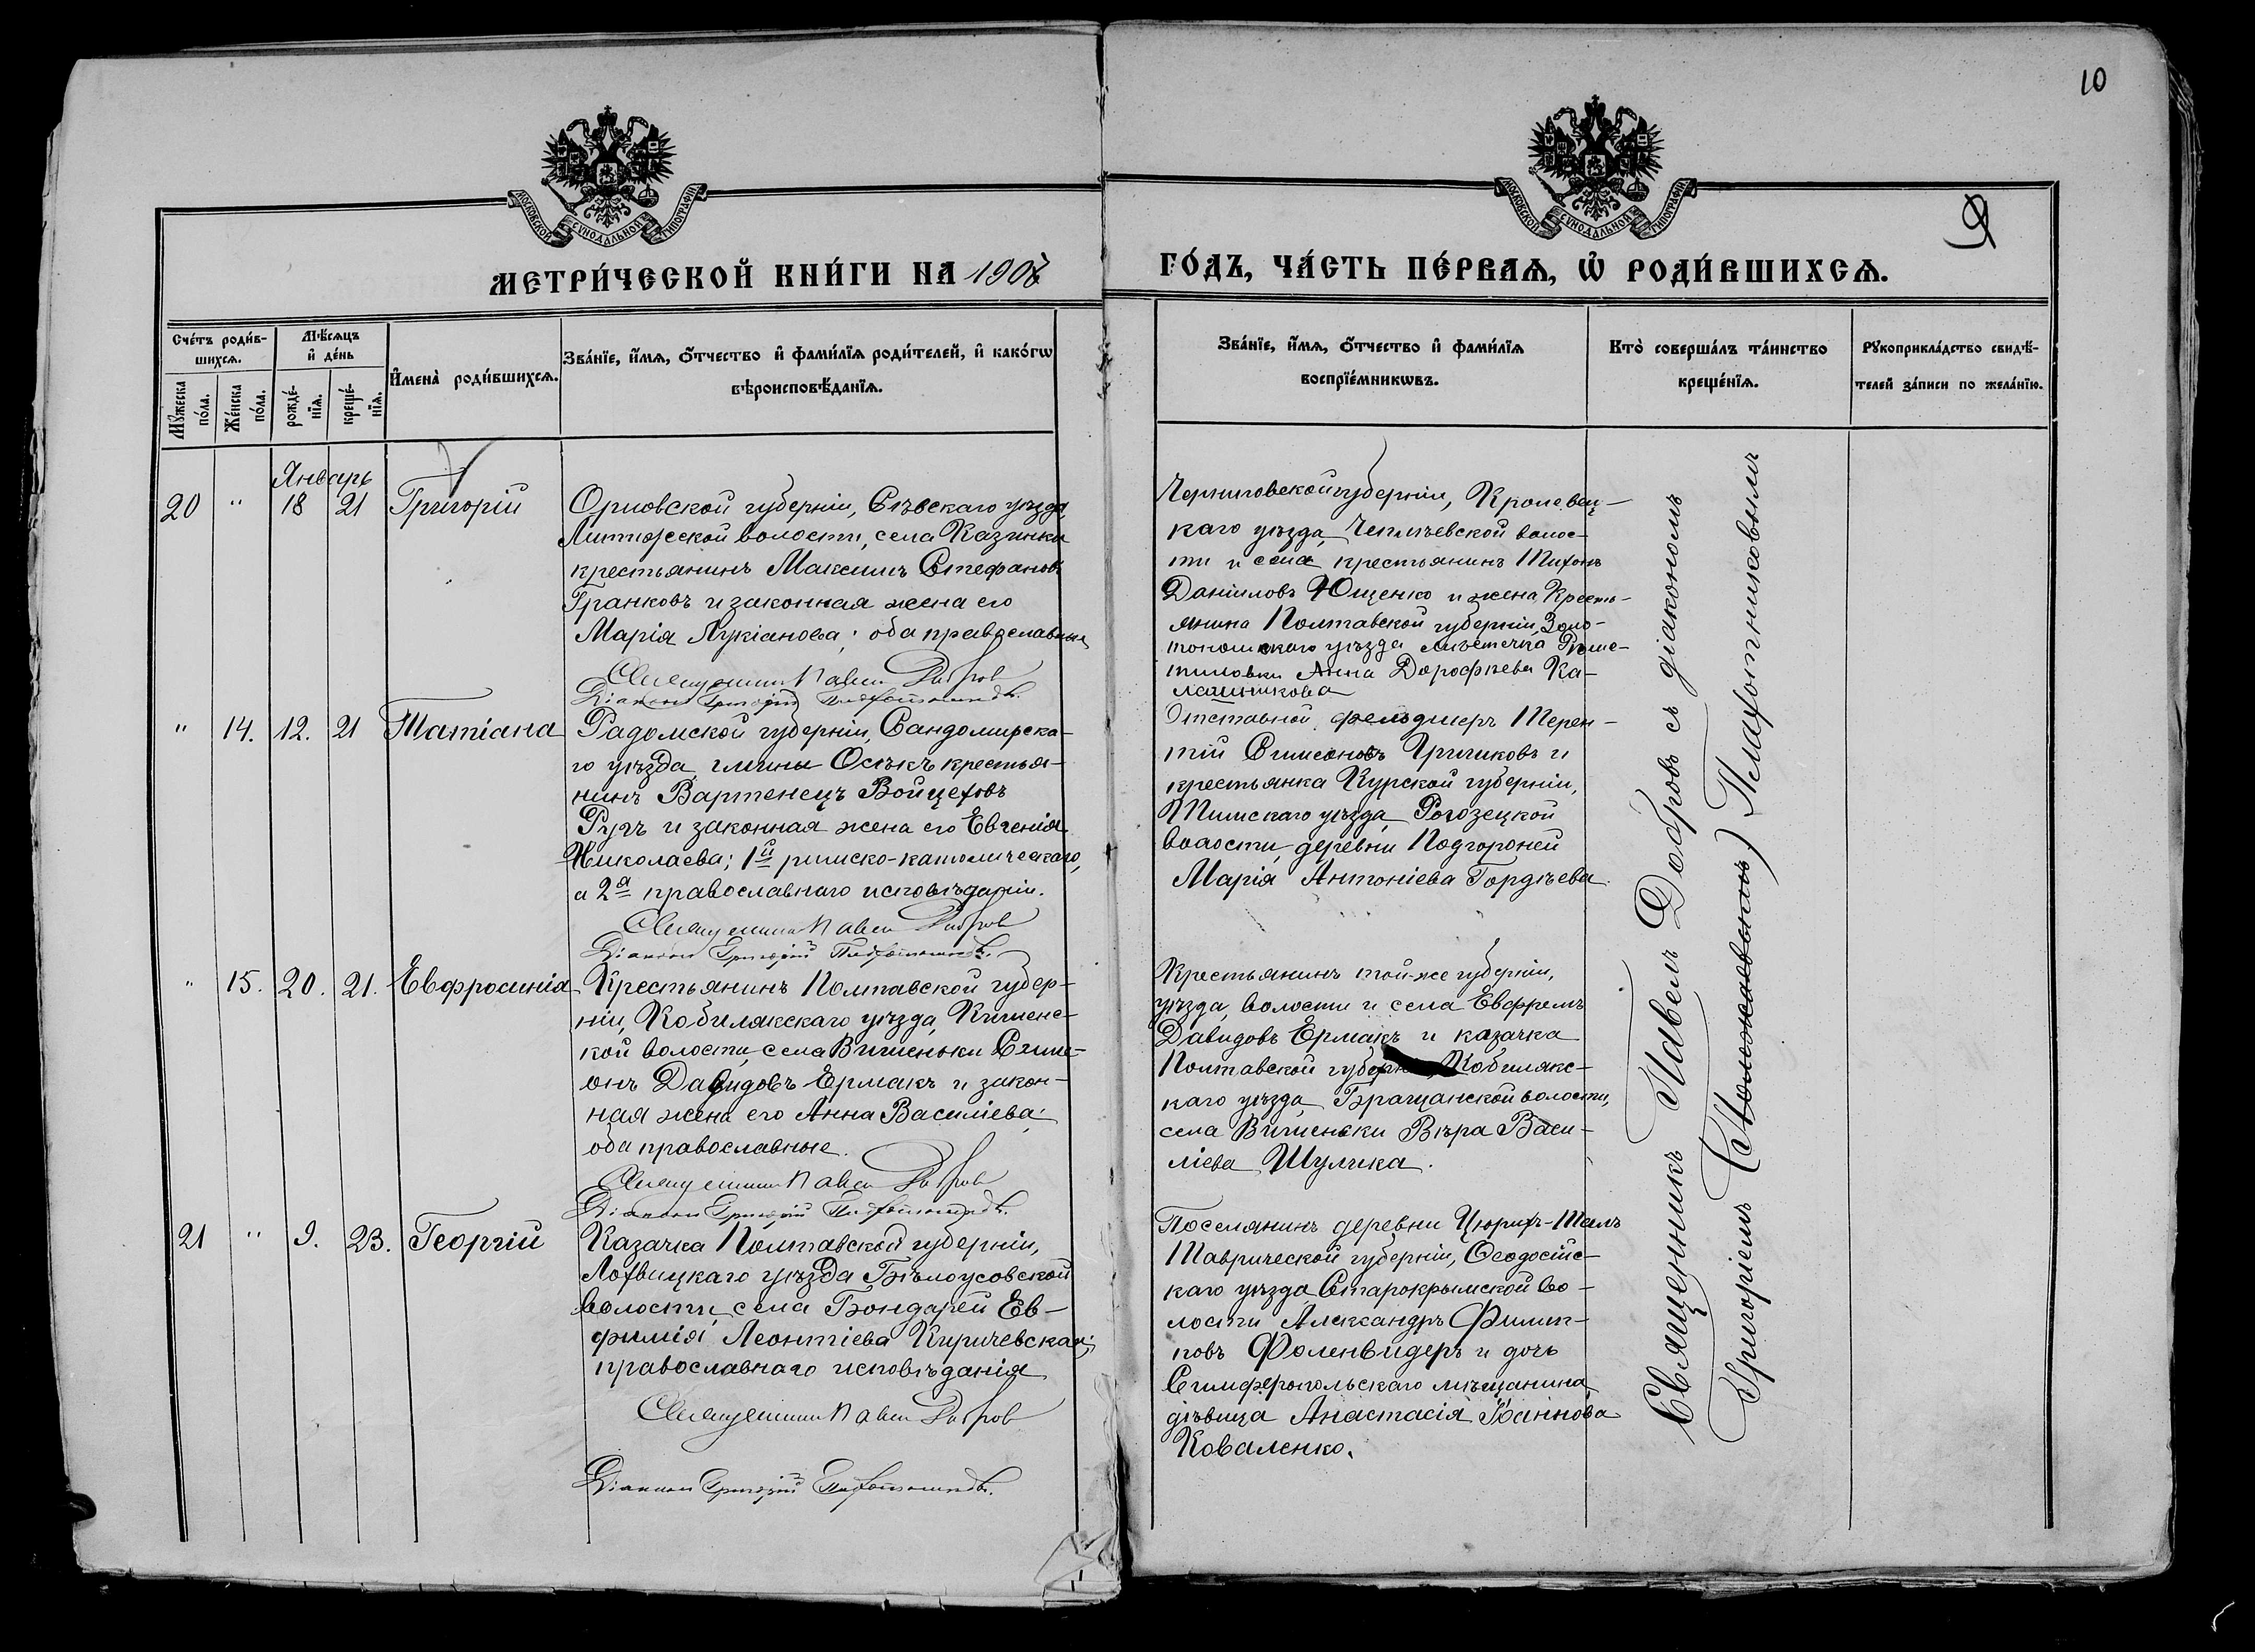 10
МОСКОВСКОЙ СѴНОДАЛЬНОЙ ТИПОГРАФІИ
МОСКОВСКОЙ СѴНОДАЛЬНОЙ ТИПОГРАФІИ
9
МЕТРИ́ЧЕСКОЙ КНИ́ГИ НА 1907
ГО́ДЪ, ЧА́СТЬ ПЕ́РВАѦ, Ѡ҆ РОДИ́ВШИХСѦ.
Сче́тъ роди́в-
шихсѧ.
Мꙋжеска по́ла.
Же́нска по́ла.
Мѣ́сѧцъ
и҆ де́нь
рожде́-нїѧ.
креще́-нїѧ.
И҆мена̀ роди́вшихсѧ.
Зва́нїе, и҆́мѧ, ѻ҆́тчество и҆ фами́лїѧ роди́телей, и҆ како́гѡ
вѣроисповѣ́данїѧ.
Зва́нїе, и҆́мѧ, ѻ҆́тчество и҆ фами́лїѧ
воспрїе́мникѡвъ.
Кто̀ соверша́лъ та́инство
креще́нїѧ.
Рꙋкоприкла́дство свидѣ́-
телей за́писи по жела́нїю.
Январь
20 " 18 21 Григорій
Орловской губерніи, Сѣвскаго уѣзда,
Литижской волости, села Казинки
крестьянинъ Максимъ Стефановъ
Гранковъ и законная жена его
Марія Лукіанова; оба православные
Священникъ Павелъ Добров
Діаконъ Григорій
Черниговской губерніи, Кролевец-
каго уѣзда, Чеплѣевской волос-
ти и села крестьянинъ Тихонъ
Даніиловъ Ющенко и жена Кресть-
янина Полтавской губерніи, Золо-
тоношскаго уѣзда мѣстечка Рѣше-
тиловки Анна Дорофѣева Ка-
лашникова
" 14. 12. 21 Татіана
Радомской губерніи, Сандомирска-
го уѣзда, гмины Осѣкъ крестья-
нинъ Вартенецъ Войцеховъ
Ругъ и законная жена его Евгенія
Николаева; 1й римско-католическаго,
а 2я православнаго исповѣданіи.
Священникъ Павелъ Добров
Діаконъ Григорій
Отставной фельдшеръ Терен-
тій Симеоновъ Гришковъ и
крестьянка Курской губерніи,
Тимскаго уѣзда, Рогозецкой
волости, деревни Подгороней
Марія Антоніева Гордѣева.
" 15. 20. 21. Евфросинія
Крестьянинъ Полтавской губер-
ніи, Кобилякскаго уѣзда, Кишенс-
кой волости села Вишеньки Симе-
онъ Давидовъ Ермакъ и закон-
ная жена его Анна Василіева;
оба православные.
Священникъ Павелъ Добров
Діаконъ Григорій
Крестьянинъ той-же губерніи,
уѣзда, волости и села Евфремъ
Давидовъ Ермакъ и казачка
Полтавской губерніи, Кобилякс-
каго уѣзда Брагцанской волости,
села Вишеньки Вѣра Васи-
ліева Шулика.
21 " 9. 23. Георгій
Казачка Полтавской губерніи,
Лохвицкаго уѣзда Бѣлоусовской
волости, села Бондарей Ев-
фимія Леонтіева Киричевская;
православнаго исповѣданія
Священникъ Павелъ Добров
Діаконъ Григорій
Поселянинъ деревни Цюрихъ-Талъ
Таврической губерніи, Ѳеодосійс-
каго уѣзда Старокрымской во-
лости Александръ Филип-
повъ Фоленвидеръ и дочь
Симферопольскаго мѣщанина
дѣвица Анастасія Іоаннова
Коваленко.
Священникъ Павелъ Добровъ съ діакономъ
Григоріемъ (Положовымъ) Плахотниковымъ